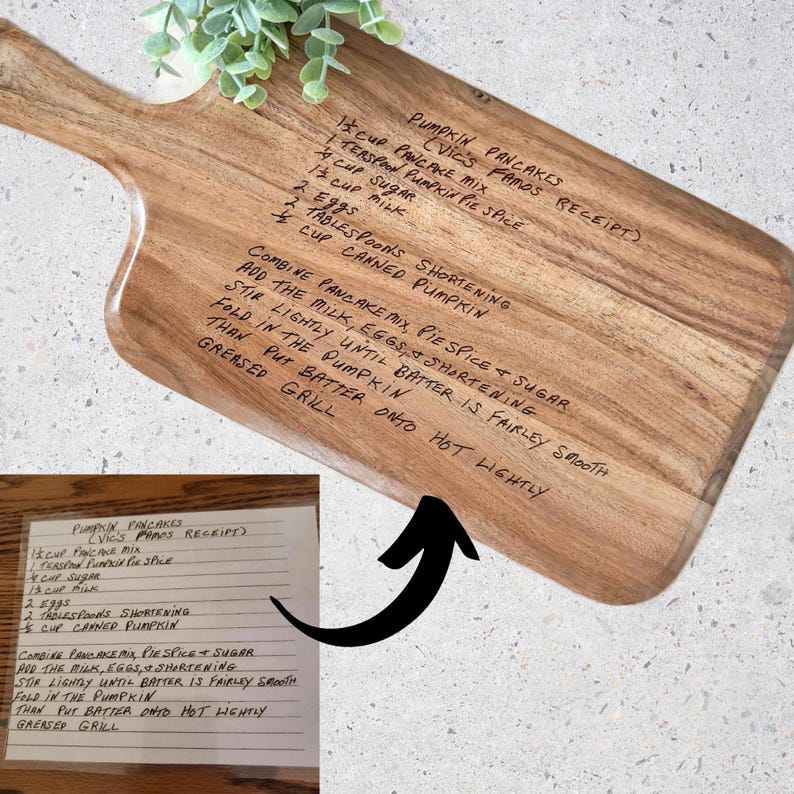 PUMPKIN PANCAKES
(VIC'S FAMOS RECEIPT)
1½ CUP PANCAKE MIX
1 TEASPOON PUMPKIN PIE SPICE
¼ CUP SUGAR
1½ CUP MILK
2 EGGS
2 TABLESPOONS SHORTENING
½ CUP CANNED PUMPKIN
COMBINE PANCAKE MIX, PIE SPICE & SUGAR
ADD THE MILK, EGGS, & SHORTENING
STIR LIGHTLY UNTIL BATTER IS FAIRLEY SMOOTH
FOLD IN THE PUMPKIN
THAN PUT BATTER ONTO HOT LIGHTLY
GREASED GRILL
PUMPKIN PANCAKES
(VIC'S FAMOS RECEIPT)
1½ CUP PANCAKE MIX
1 TEASPOON PUMPKIN PIE SPICE
¼ CUP SUGAR
1½ CUP MILK
2 EGGS
2 TABLESPOONS SHORTENING
½ CUP CANNED PUMPKIN
COMBINE PANCAKE MIX, PIE SPICE & SUGAR
ADD THE MILK, EGGS, & SHORTENING
STIR LIGHTLY UNTIL BATTER IS FAIRLEY SMOOTH
FOLD IN THE PUMPKIN
THAN PUT BATTER ONTO HOT LIGHTLY
GREASED GRILL